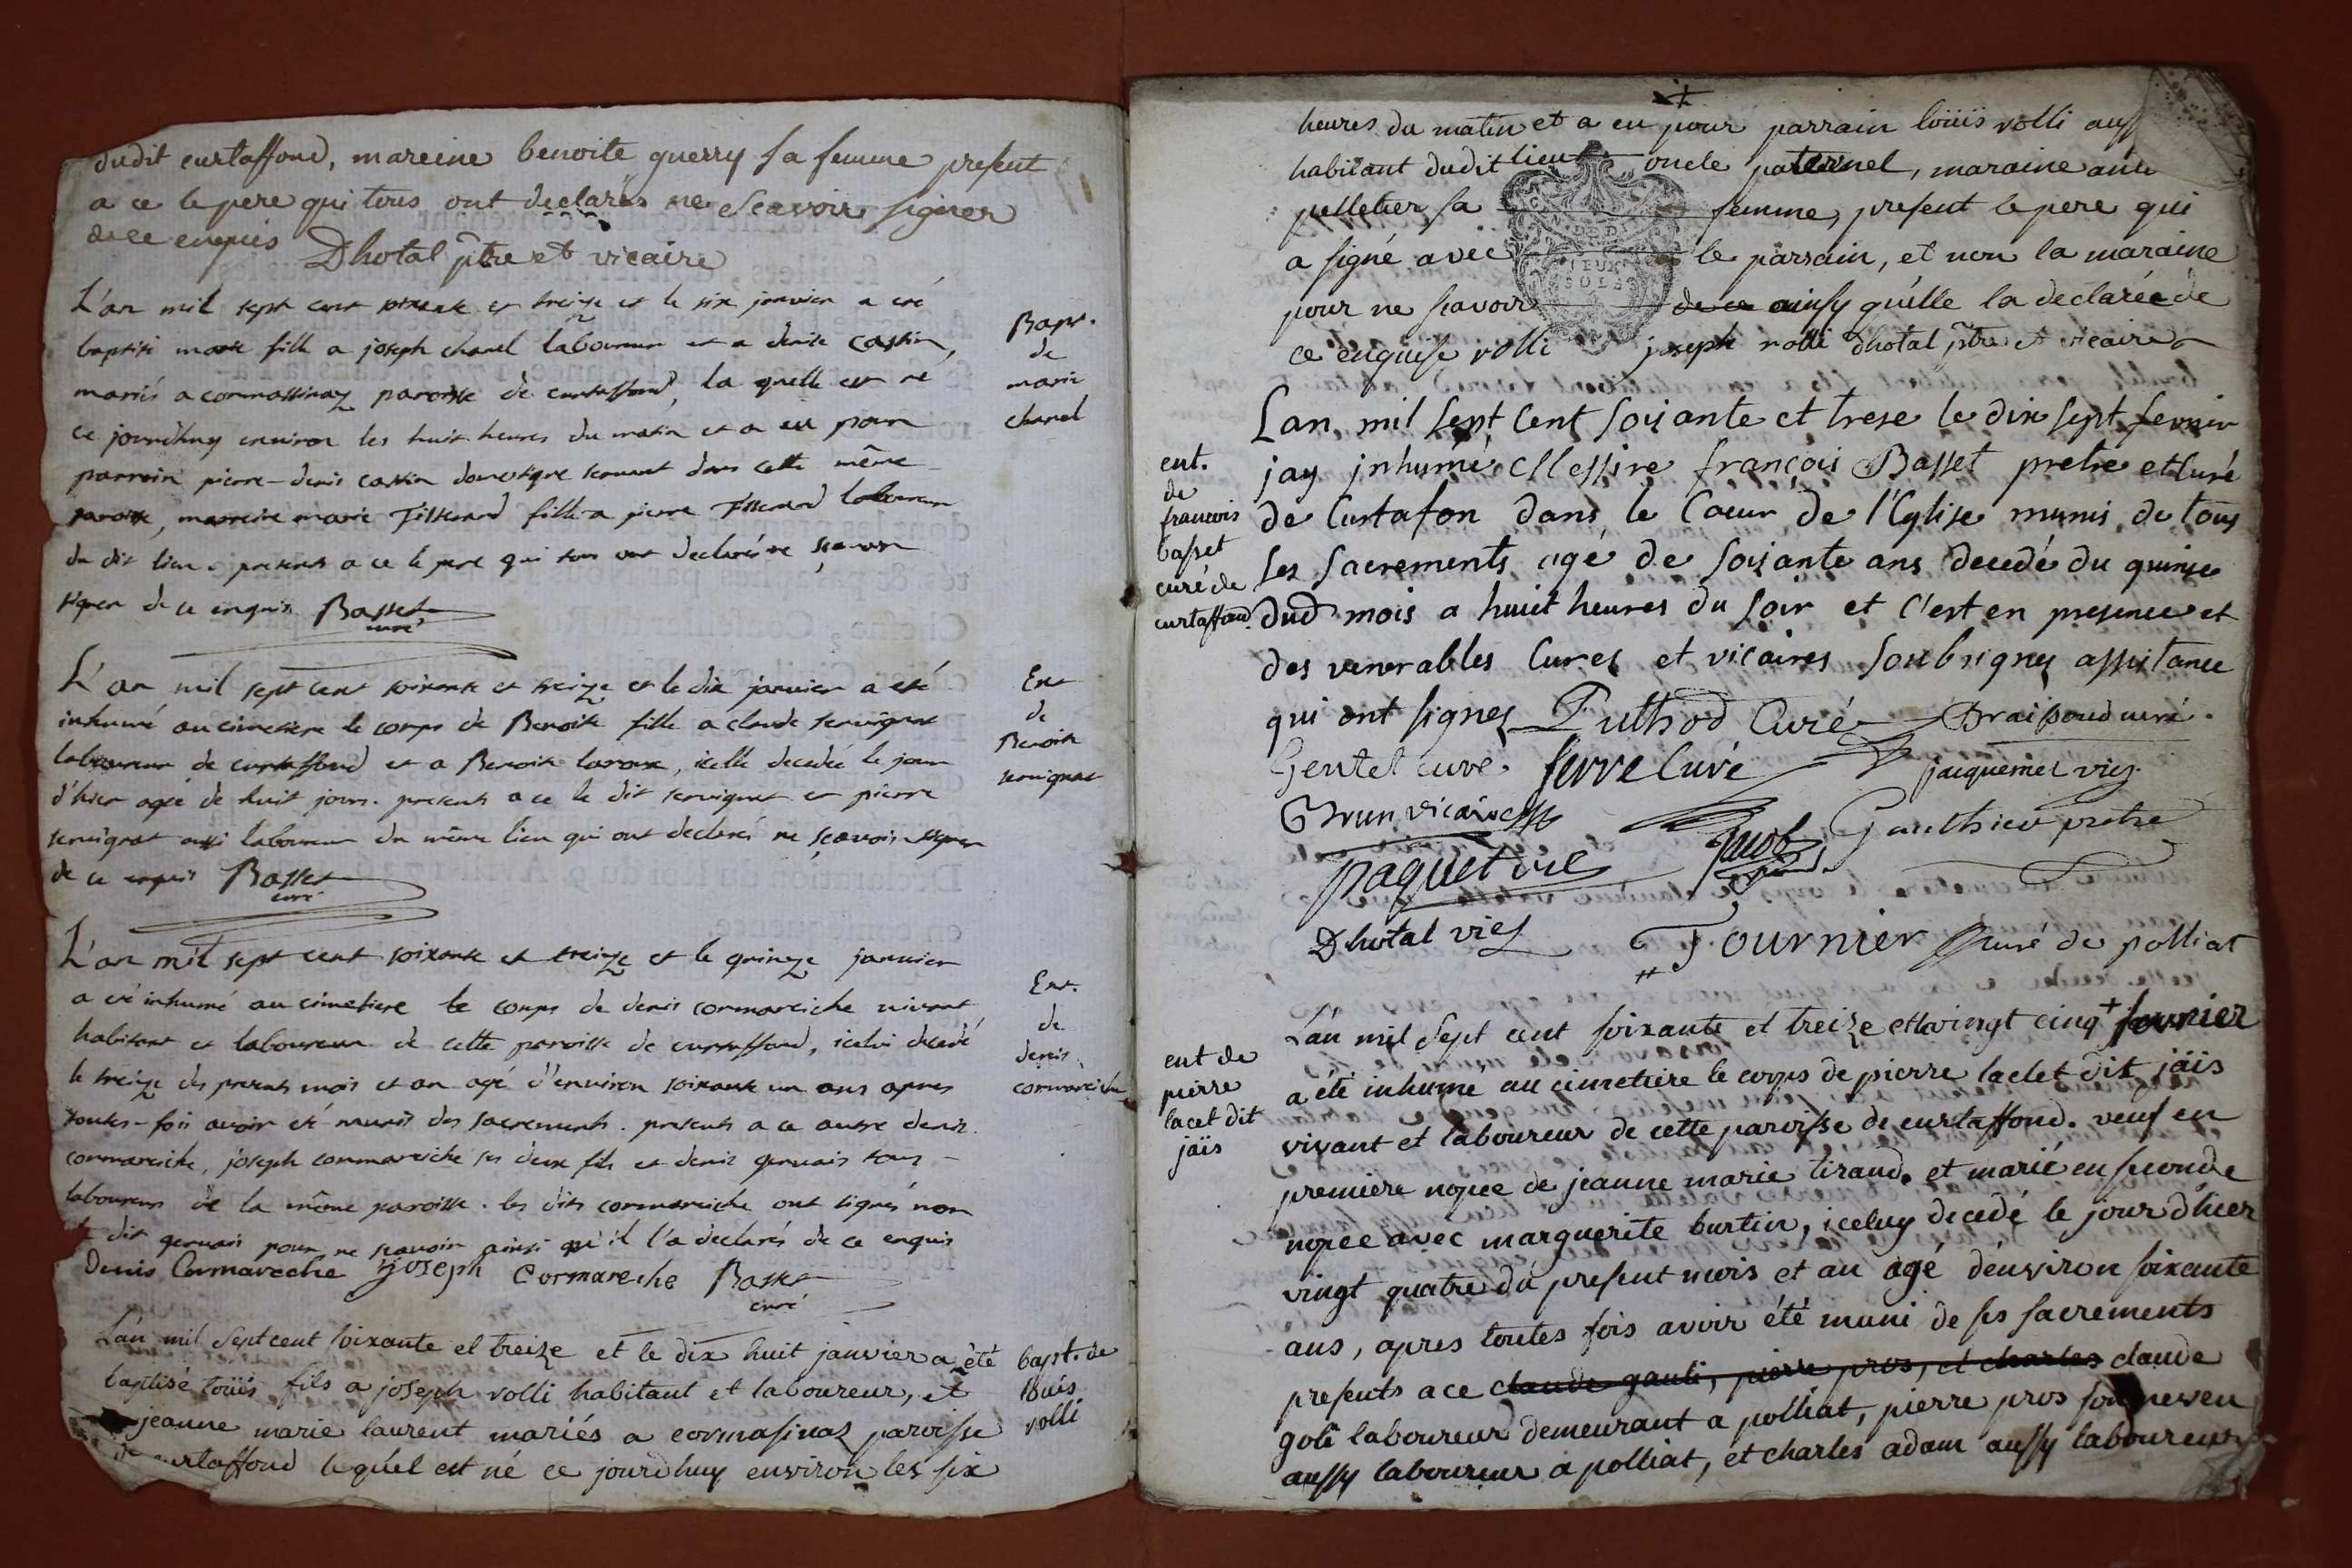 dudit curtaffond, mareine benoite guerry sa femme present
a ce le pere qui tous ont declarés ne scavoir signer
de ce enquis Dhotal ptre et vicaire
L'an mil sept cent soixante et treize et le six janvier a été
baptisé marie fille a joseph chanel laboureur et a denise castin,
mariés a cormassinaz paroisse de curtaffond, la quelle est né
ce jourdhuy environ les huit heures du matin et a eu pour
parrein pierre-denis castin domestique servant dans cette même
paroisse, marreine marie Tisserand fille a pierre Tisserand laboureur
du dit lieu. presents a ce le pere qui tous ont declarés ne sçavoir
signer de ce enquis Basset
curé
Bapt.
de
marie
chanel
L'an mil sept cent soixante et treize et le dix janvier a eté
inhumé au cimetiere le corps de Benoite fille a claude servignat
laboureur de curtaffond et a Benoite, icelle decedée le jour
d'hier agée de huit jours. presents a ce le dit servignat et pierre
servignat aussi laboureur du même lieu qui ont declarés ne sçavoir signer
de ce enquis Basset
curé
Ent
de
Benoite
servignat
L'an mil sept cent soixante et treize et le quinze janvier
a été inhumé au cimetiere le corps de denis cormareiche vivant
habitant et laboureur de cette paroisse de curtaffond, icelui decedé
le treize des presents mois et an agé d'environ soixante un ans apres
toutes-fois avoir été munis des sacrements. presents a ce autre denis
cormareiche, joseph cormareiche ses deux fils et denis gervais tous
laboureurs de la même paroisse. les dits cormareiche ont signés non
le dit gervais pour ne scavoir ainsi qu'il l'a declarés de ce enquis
Denis Cormareche joseph Cormareche Basset
curé
Ent.
de
denis
cormareiche
L'an mil sept cent soixante et treize et le dix huit janvier a été
baptisé loüis fils a joseph volli habitant et laboureur, et
jeanne marie laurent mariés a cormasinaz paroisse
de curtaffond lequel est né ce jourdhuy environ les six
bapt. de
loüis
volli
heures du matin et a eu pour parrain loüis volli aussy
habitant dudit lieu oncle paternel, maraine
pelletier sa femme, present le pere qui
a signé avec le parrain, et non la maraine
pour ne scavoir de ce ainsy qu'elle la declarée de
ce enquise volli joseph volli dhotal ptre et vicaire
Lan mil sept cent soisante et trese le dix sept fevrier
jay inhumé Messire françois Basset pretre et curé
de Curtafon dans le Cœur de l'Eglise munis de tous
les sacrements agé de soisante ans decedé du quinse
dud mois a huit heures du soir et c'est en presence et
des venerables Cures et vicaires soubsignes assitance
qui ont signes Puthod Curé Draisond curé.
Gentet curé. serve Curé jacquemet vic.
Brun vicaire
paquet vic Jacob Gauthier pretre
Dhotal vic Tournier Curé de polliat
ent.
de
francois
basset
curé de
curtaffond.
L'an mil sept cent soixante et treize et le vingt cinq fevrier
a été inhumé au cimetiere le corps de pierre laclet dit jäis
vivant et laboureur de cette paroisse de curtaffond. veuf en
premiere nopce de jeanne marie tirand, et marié en seconde
nopce avec marguerite burtin, iceluy decedé le jour d'hier
vingt quatre du present mois et an agé d'environ soixante
ans, apres toutes fois avoir été muni de ses sacrements
presents a ce claude gauti, pierre pros, et charles claude
goli laboureur demeurant a polliat, pierre pros son neveu
aussy laboureur a polliat, et charles adam aussy laboureur
ent de
pierre
lacet dit
jäis